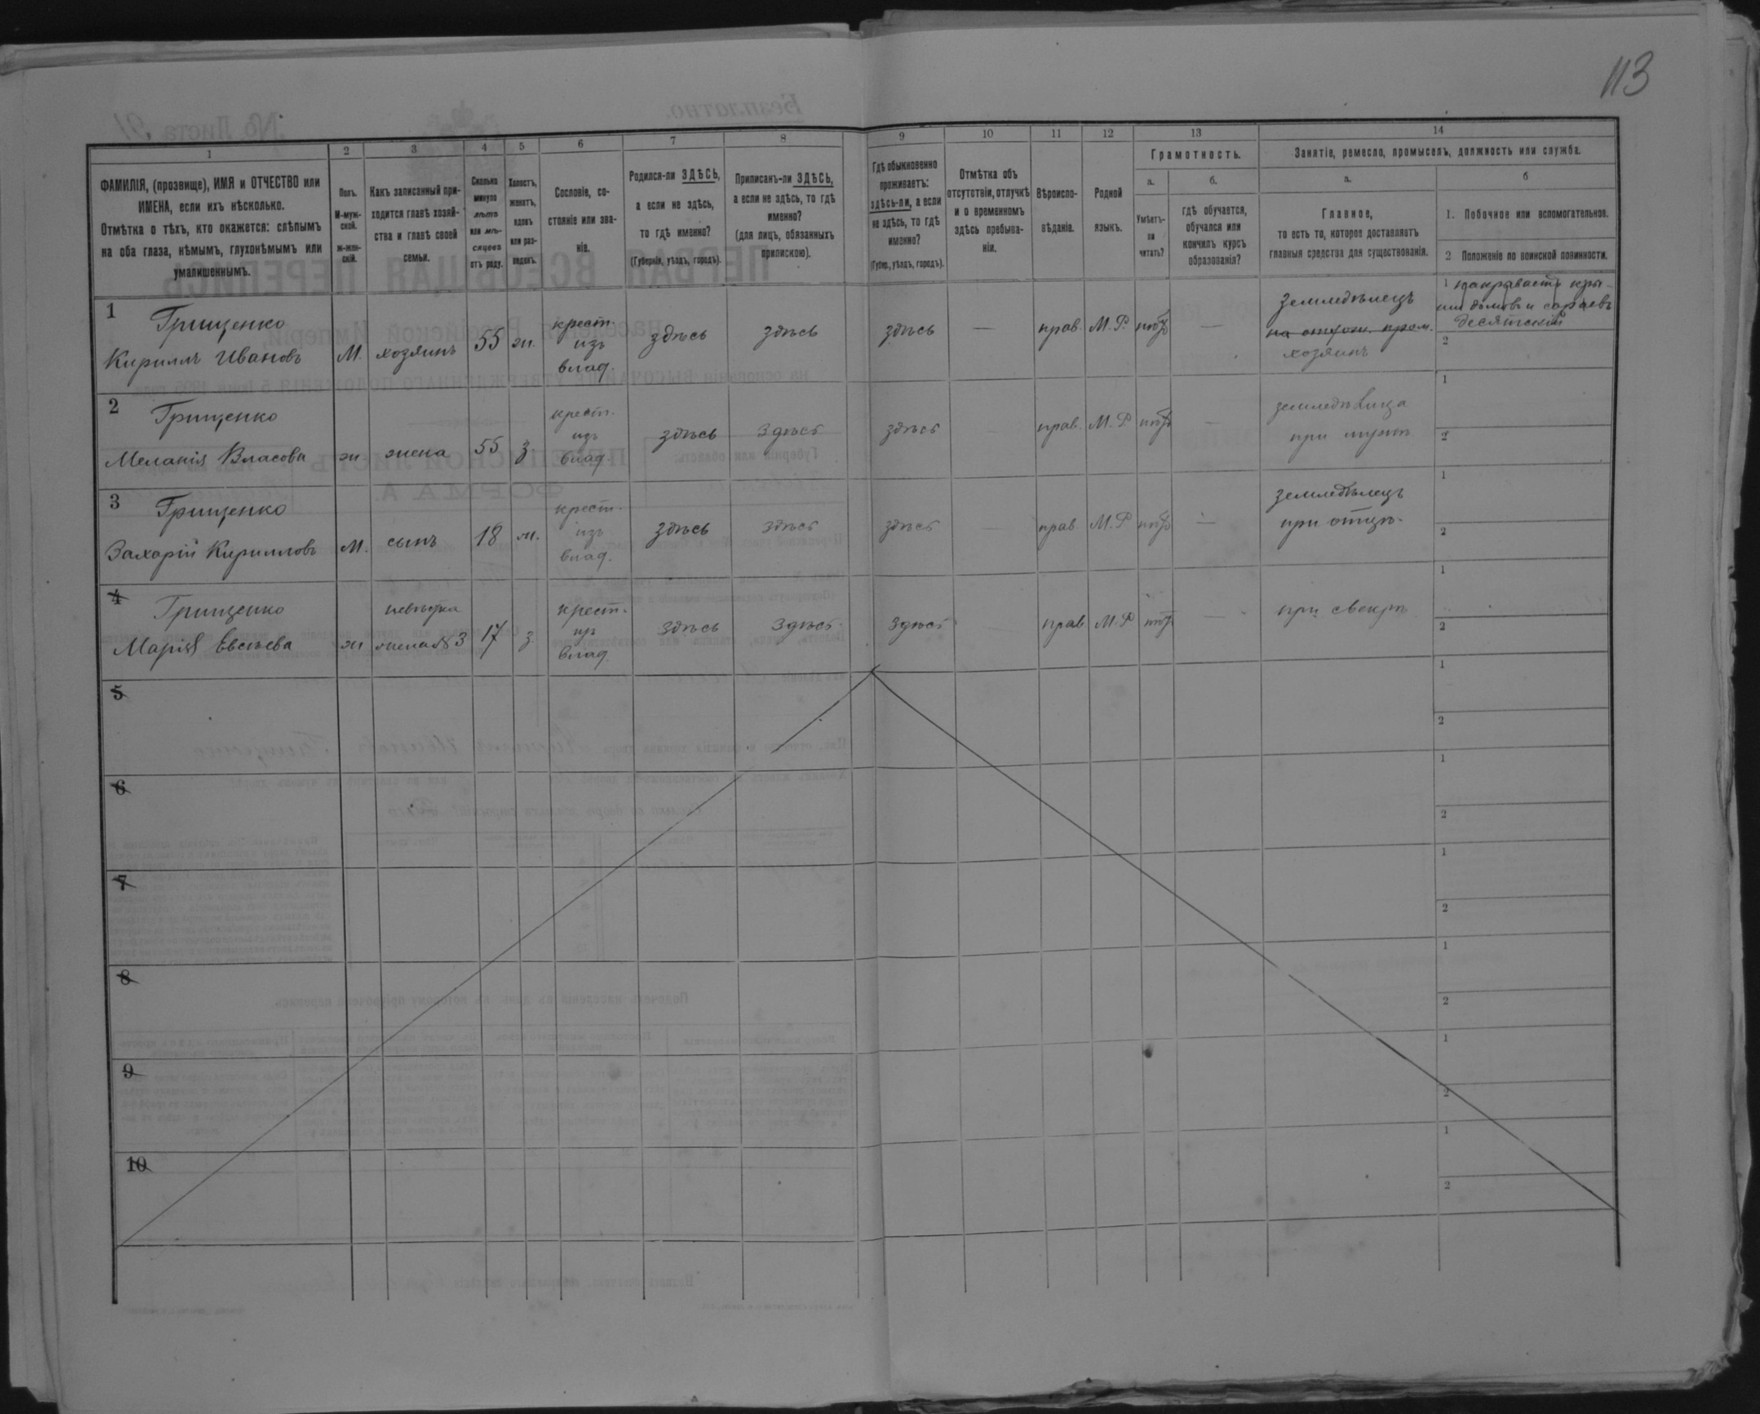 113
1
2
3
4
5
6
7
8
9
10
11
12
13
14
ФАМИЛІЯ, (прозвище), ИМЯ и ОТЧЕСТВО или
ИМЕНА, если ихъ нѣсколько.
Отмѣтка о тѣхъ, кто окажется: слѣпымъ
на оба глаза, нѣмымъ, глухонѣмымъ или
умалишеннымъ.
Полъ.
М-муж-
ской.
ж-жен-
скій.
Какъ записанный при-
ходится главѣ хозяй-
ства и главѣ своей
семьи.
Сколько
минуло
лѣтъ
или мѣ-
сяцевъ
отъ роду.
Холостъ,
женатъ,
вдовъ
или раз-
веденъ.
Сословіе, со-
стояніе или зва-
ніе.
Родился-ли ЗДѢСЬ,
а если не здѣсь,
то гдѣ именно?
(Губернія, уѣздъ, городъ).
Приписанъ-ли ЗДѢСЬ,
а если не здѣсь, то гдѣ
именно?
(для лицъ, обязанныхъ
припискою).
Гдѣ обыкновенно
проживаетъ:
здѣсь-ли, а если
не здѣсь, то гдѣ
именно?
(Губер., уѣздъ, городъ).
Отмѣтка объ
отсутствіи, отлучкѣ
и о временномъ
здѣсь пребыва-
ніи.
Вѣроиспо-
вѣданіе.
Родной
языкъ.
Грамотность.
а.
Умѣетъ-
ли
читать?
б.
гдѣ обучается,
обучался или
кончилъ курсъ
образованія?
Занятіе, ремесло, промыселъ, должность или служба.
а.
Главное,
то есть то, которое доставляетъ
главныя средства для существованія.
б
1. Побочное или вспомогательное.
2 Положеніе по воинской повинности.
1
Грищенко
Кириллъ Ивановъ
М.
хозяинъ
55
ж.
крест.
изъ
влад.
здѣсь
здѣсь
здѣсь
—
прав.
М.Р.
нѣтъ
—
земледѣлецъ
хозяинъ
1
домовъ и сараевъ
десятскій
2
2
Грищенко
Меланія Власова
ж
жена
55
з
крест.
изъ
влад.
здѣсь
здѣсь
здѣсь
—
прав.
М.Р
нѣтъ
—
при мужѣ
1
2
3
Грищенко
Захарій Кирилловъ
М.
сынъ
18
ж.
крест.
изъ
влад.
здѣсь
здѣсь
здѣсь
—
прав
М.Р
нѣтъ
—
земледѣлецъ
при отцѣ.
1
2
4
Грищенко
Марія Евсѣева
ж
невѣстка
жена №3
17
з
крест.
изъ
влад.
здѣсь
здѣсь
здѣсь
—
прав
М.Р
нѣтъ
—
при свекрѣ
1
2
5
1
2
6
1
2
7
1
2
8
1
2
9
1
2
10
1
2